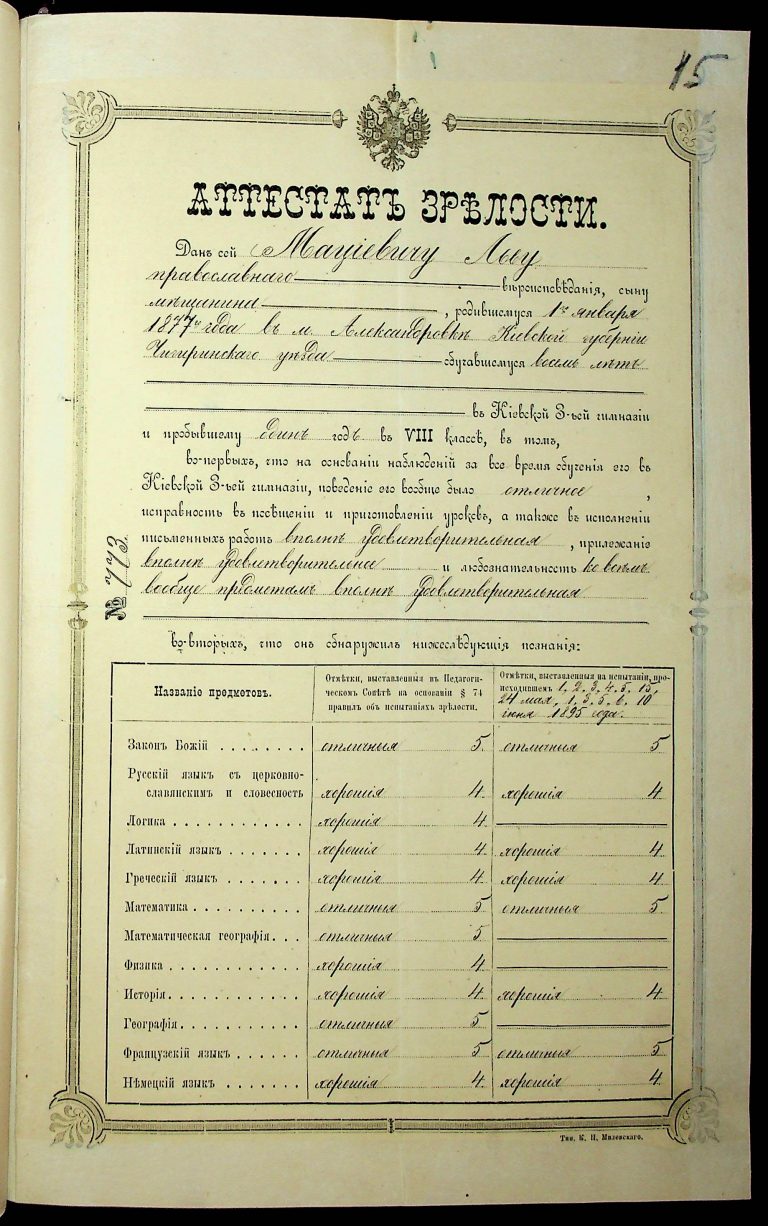 15
АТТЕСТАТЪ ЗРѢЛОСТИ.
Данъ сей Мацiевичу Льву
православнаго вѣроисповѣданія, сыну
мѣщанина, родившемуся 1го января
1877 года въ м. Александровкѣ Кіевской губерніи
Чигеринскаго уѣзда обучавшемуся восемь лѣтъ
въ Кіевской 3-ьей гимназіи
и пробывшему одинъ годъ въ VIII классѣ, въ томъ,
во-первыхъ, что на основаніи наблюденій за все время обученія его въ
Кіевской 3-ьей гимназіи, поведеніе его вообще было отличное,
исправность въ посѣщеніи и приготовленіи уроковъ, а также въ исполненіи
письменныхъ работъ вполнѣ удовлетворительная, прилежаніе
вполнѣ удовлетворительное и любознательность ко всѣмъ
вообще предметамъ вполнѣ удовлетворительная
№
во-вторыхъ, что онъ обнаружилъ нижеслѣдующія познанія:
Названіе предметовъ. Отмѣтки, выставленныя въ Педагоги- Отмѣтки, выставленныя на испытаніи, про-
ческомъ Совѣтѣ на основаніи § 74 исходившемъ 1. 2. 3. 4. 5. 15.
правилъ объ испытаніяхъ зрѣлости. 24 мая, 1. 3. 5. 6. 10
іюня 1895 года.
Законъ Божій ........ отличныя 5. отличныя 5
Русскій языкъ съ церковно-
славянскимъ и словесность хорошія 4. хорошія 4.
Логика ............ хорошія 4.
Латинскій языкъ ....... хорошія 4 хорошія 4
Греческій языкъ ....... хорошія 4. хорошія 4
Математика .......... отличныя 5 отличныя 5.
Математическая географія... отличныя 5
Физика ............ хорошія 4.
Исторія............ хорошія 4. хорошія 4
Географія........... отличныя 5
Французскій языкъ ...... отличныя 5 отличныя 5
Нѣмецкій языкъ ....... хорошія 4. хорошія 4.
Тип. К. Н. Милевскаго.